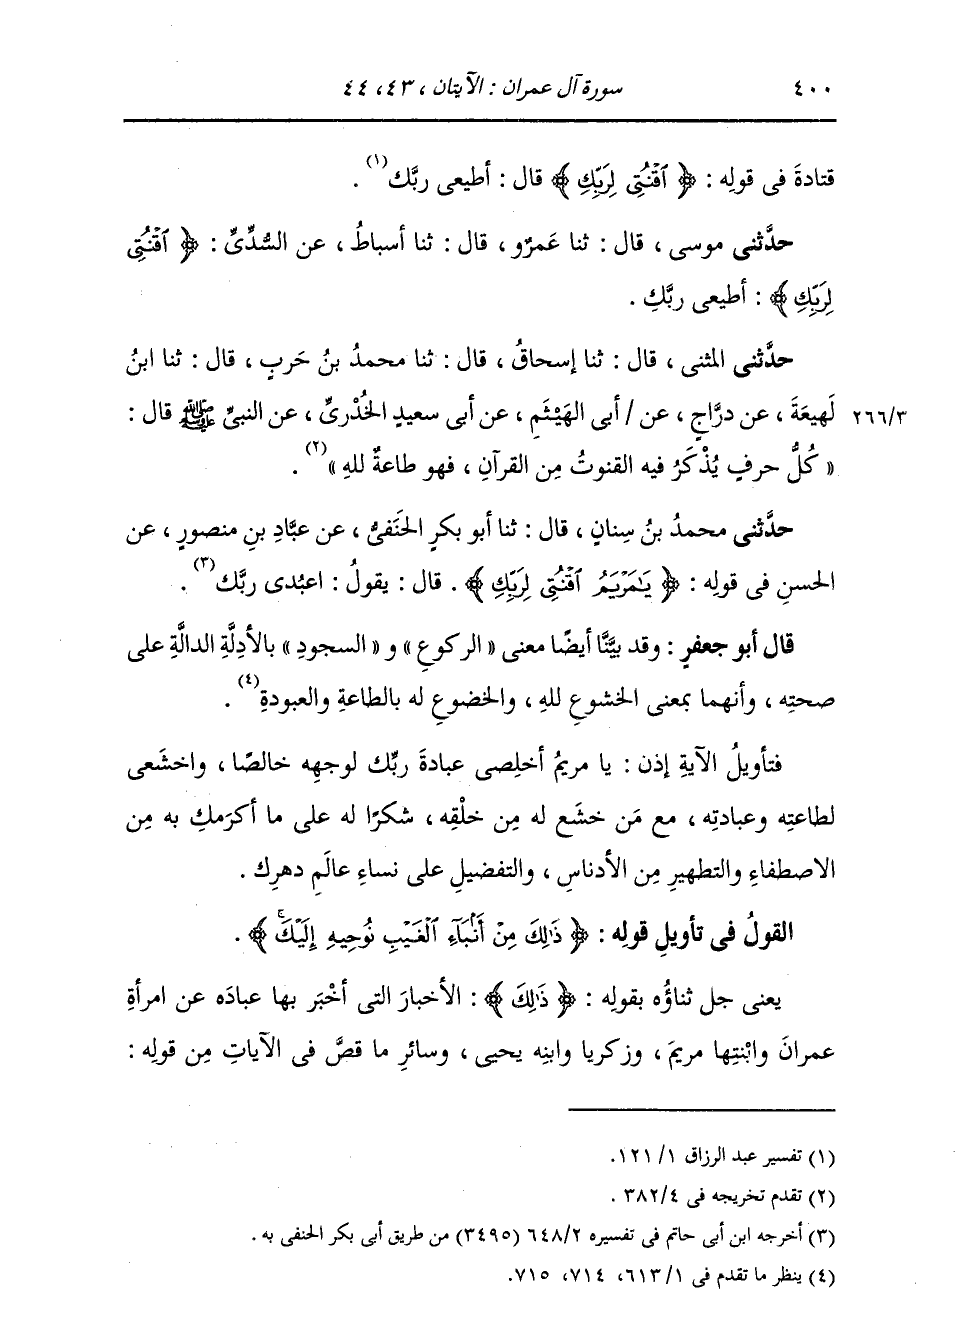 ٤٠٠ سورة آل عمران : الآيتان ، ٤٣، ٤٤
قتادةَ فى قولِه : ﴿ ٱقْنُتِى لِرَبِّكِ ﴾ قال : أطيعى ربَّك(١) .
حدَّثنى موسى ، قال : ثنا عَمرٌو ، قال : ثنا أسباطُ ، عن السُّدِّىِّ : ﴿ ٱقْنُتِى
لِرَبِّكِ ﴾ : أطيعى ربَّكِ .
حدَّثنى المثنى ، قال : ثنا إسحاقُ ، قال : ثنا محمدُ بنُ حَربٍ ، قال : ثنا ابنُ
٢٦٦/٣ لَهيعةَ ، عن درَّاجٍ ، عن / أبى الهَيْثَمِ ، عن أبى سعيدٍ الخُدْرىِّ ، عن النبىِّ ﷺ قال :
« كُلُّ حرفٍ يُذْكَرُ فيه القنوتُ مِن القرآنِ ، فهو طاعةٌ للهِ »(٢) .
حدَّثنى محمدُ بنُ سِنانٍ ، قال : ثنا أبو بكرٍ الحَنَفىُّ ، عن عبَّادِ بنِ منصورٍ ، عن
الحسنِ فى قولِه : ﴿ يَٰمَرْيَمُ ٱقْنُتِى لِرَبِّكِ ﴾ . قال : يقولُ : اعبُدى ربَّك(٣) .
قال أبو جعفرٍ : وقد بيَّنَّا أيضًا معنى « الركوعِ » و « السجودِ » بالأدِلَّةِ الدالَّةِ على
صحتِه ، وأنهما بمعنى الخشوعِ للهِ ، والخضوعِ له بالطاعةِ والعبودةِ(٤) .
فتأويلُ الآيةِ إذن : يا مريمُ أخلِصى عبادةَ ربِّك لوجهِه خالصًا ، واخشَعى
لطاعتِه وعبادتِه ، مع مَن خشَع له مِن خلْقِه ، شكرًا له على ما أكرَمكِ به مِن
الاصطفاءِ والتطهيرِ مِن الأدناسِ ، والتفضيلِ على نساءِ عالَمِ دهرِك .
القولُ فى تأويلِ قولِه : ﴿ ذَٰلِكَ مِنْ أَنۢبَآءِ ٱلْغَيْبِ نُوحِيهِ إِلَيْكَۚ ﴾ .
يعنى جل ثناؤُه بقولِه : ﴿ ذَٰلِكَ ﴾ : الأخبارَ التى أخْبَر بها عبادَه عن امرأةِ
عمرانَ وابْنتِها مريمَ ، وزكريا وابنِه يحيى ، وسائرِ ما قصَّ فى الآياتِ مِن قولِه :
(١) تفسير عبد الرزاق ١/ ١٢١.
(٢) تقدم تخريجه فى ٣٨٢/٤ .
(٣) أخرجه ابن أبى حاتم فى تفسيره ٦٤٨/٢ (٣٤٩٥) من طريق أبى بكر الحنفى به .
(٤) ينظر ما تقدم فى ١/ ٦١٣، ٧١٤، ٧١٥.